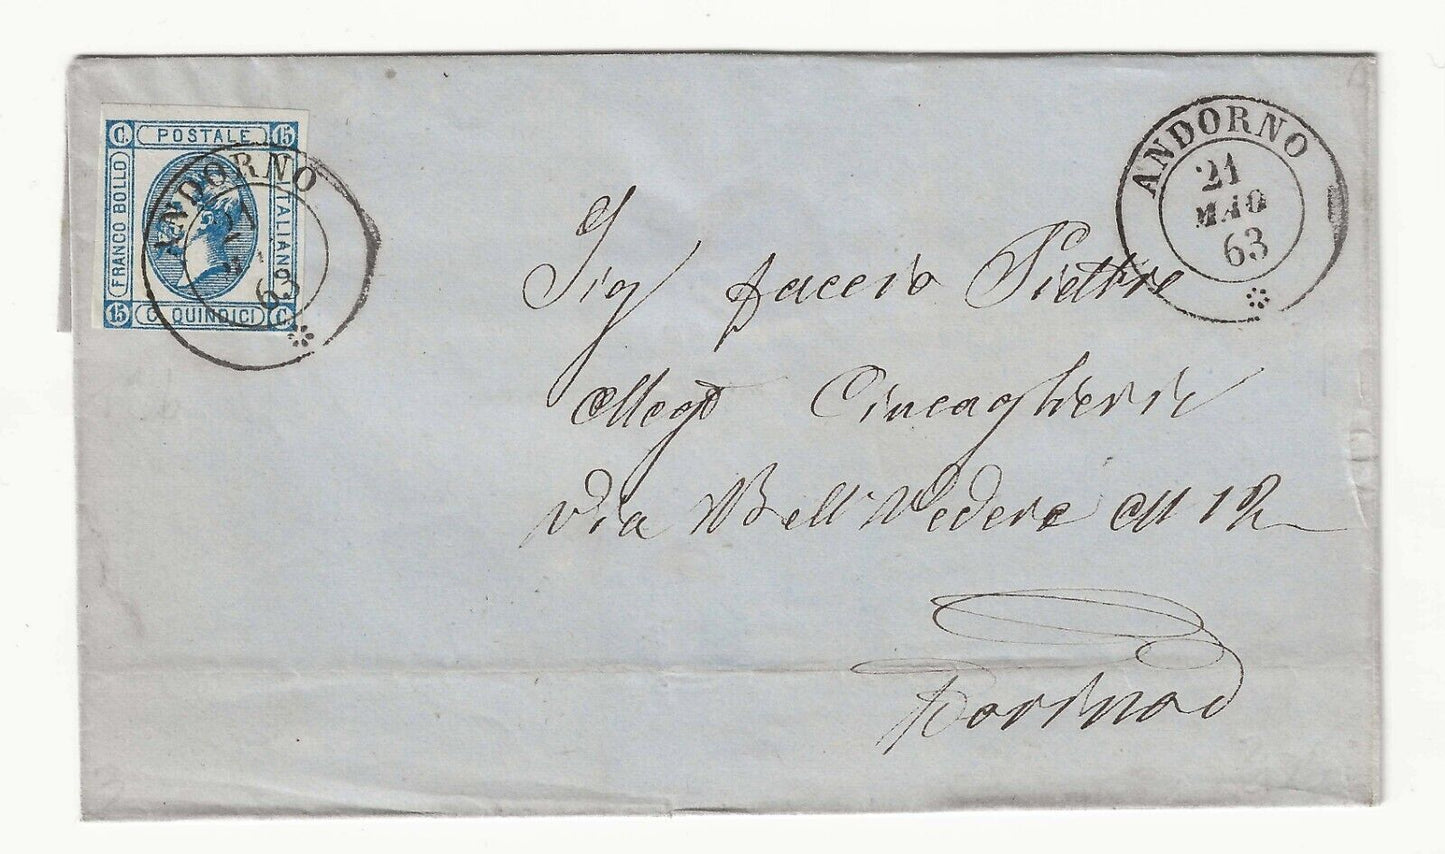 C. POSTALE 15
FRANCO BOLLO
ITALIANO
15 C. QUINDICI C.
ANDORNO
21
63
ANDORNO
21
MAG
63
Sig Faccio Pietro
Via Bell Vedere N 12
Torino